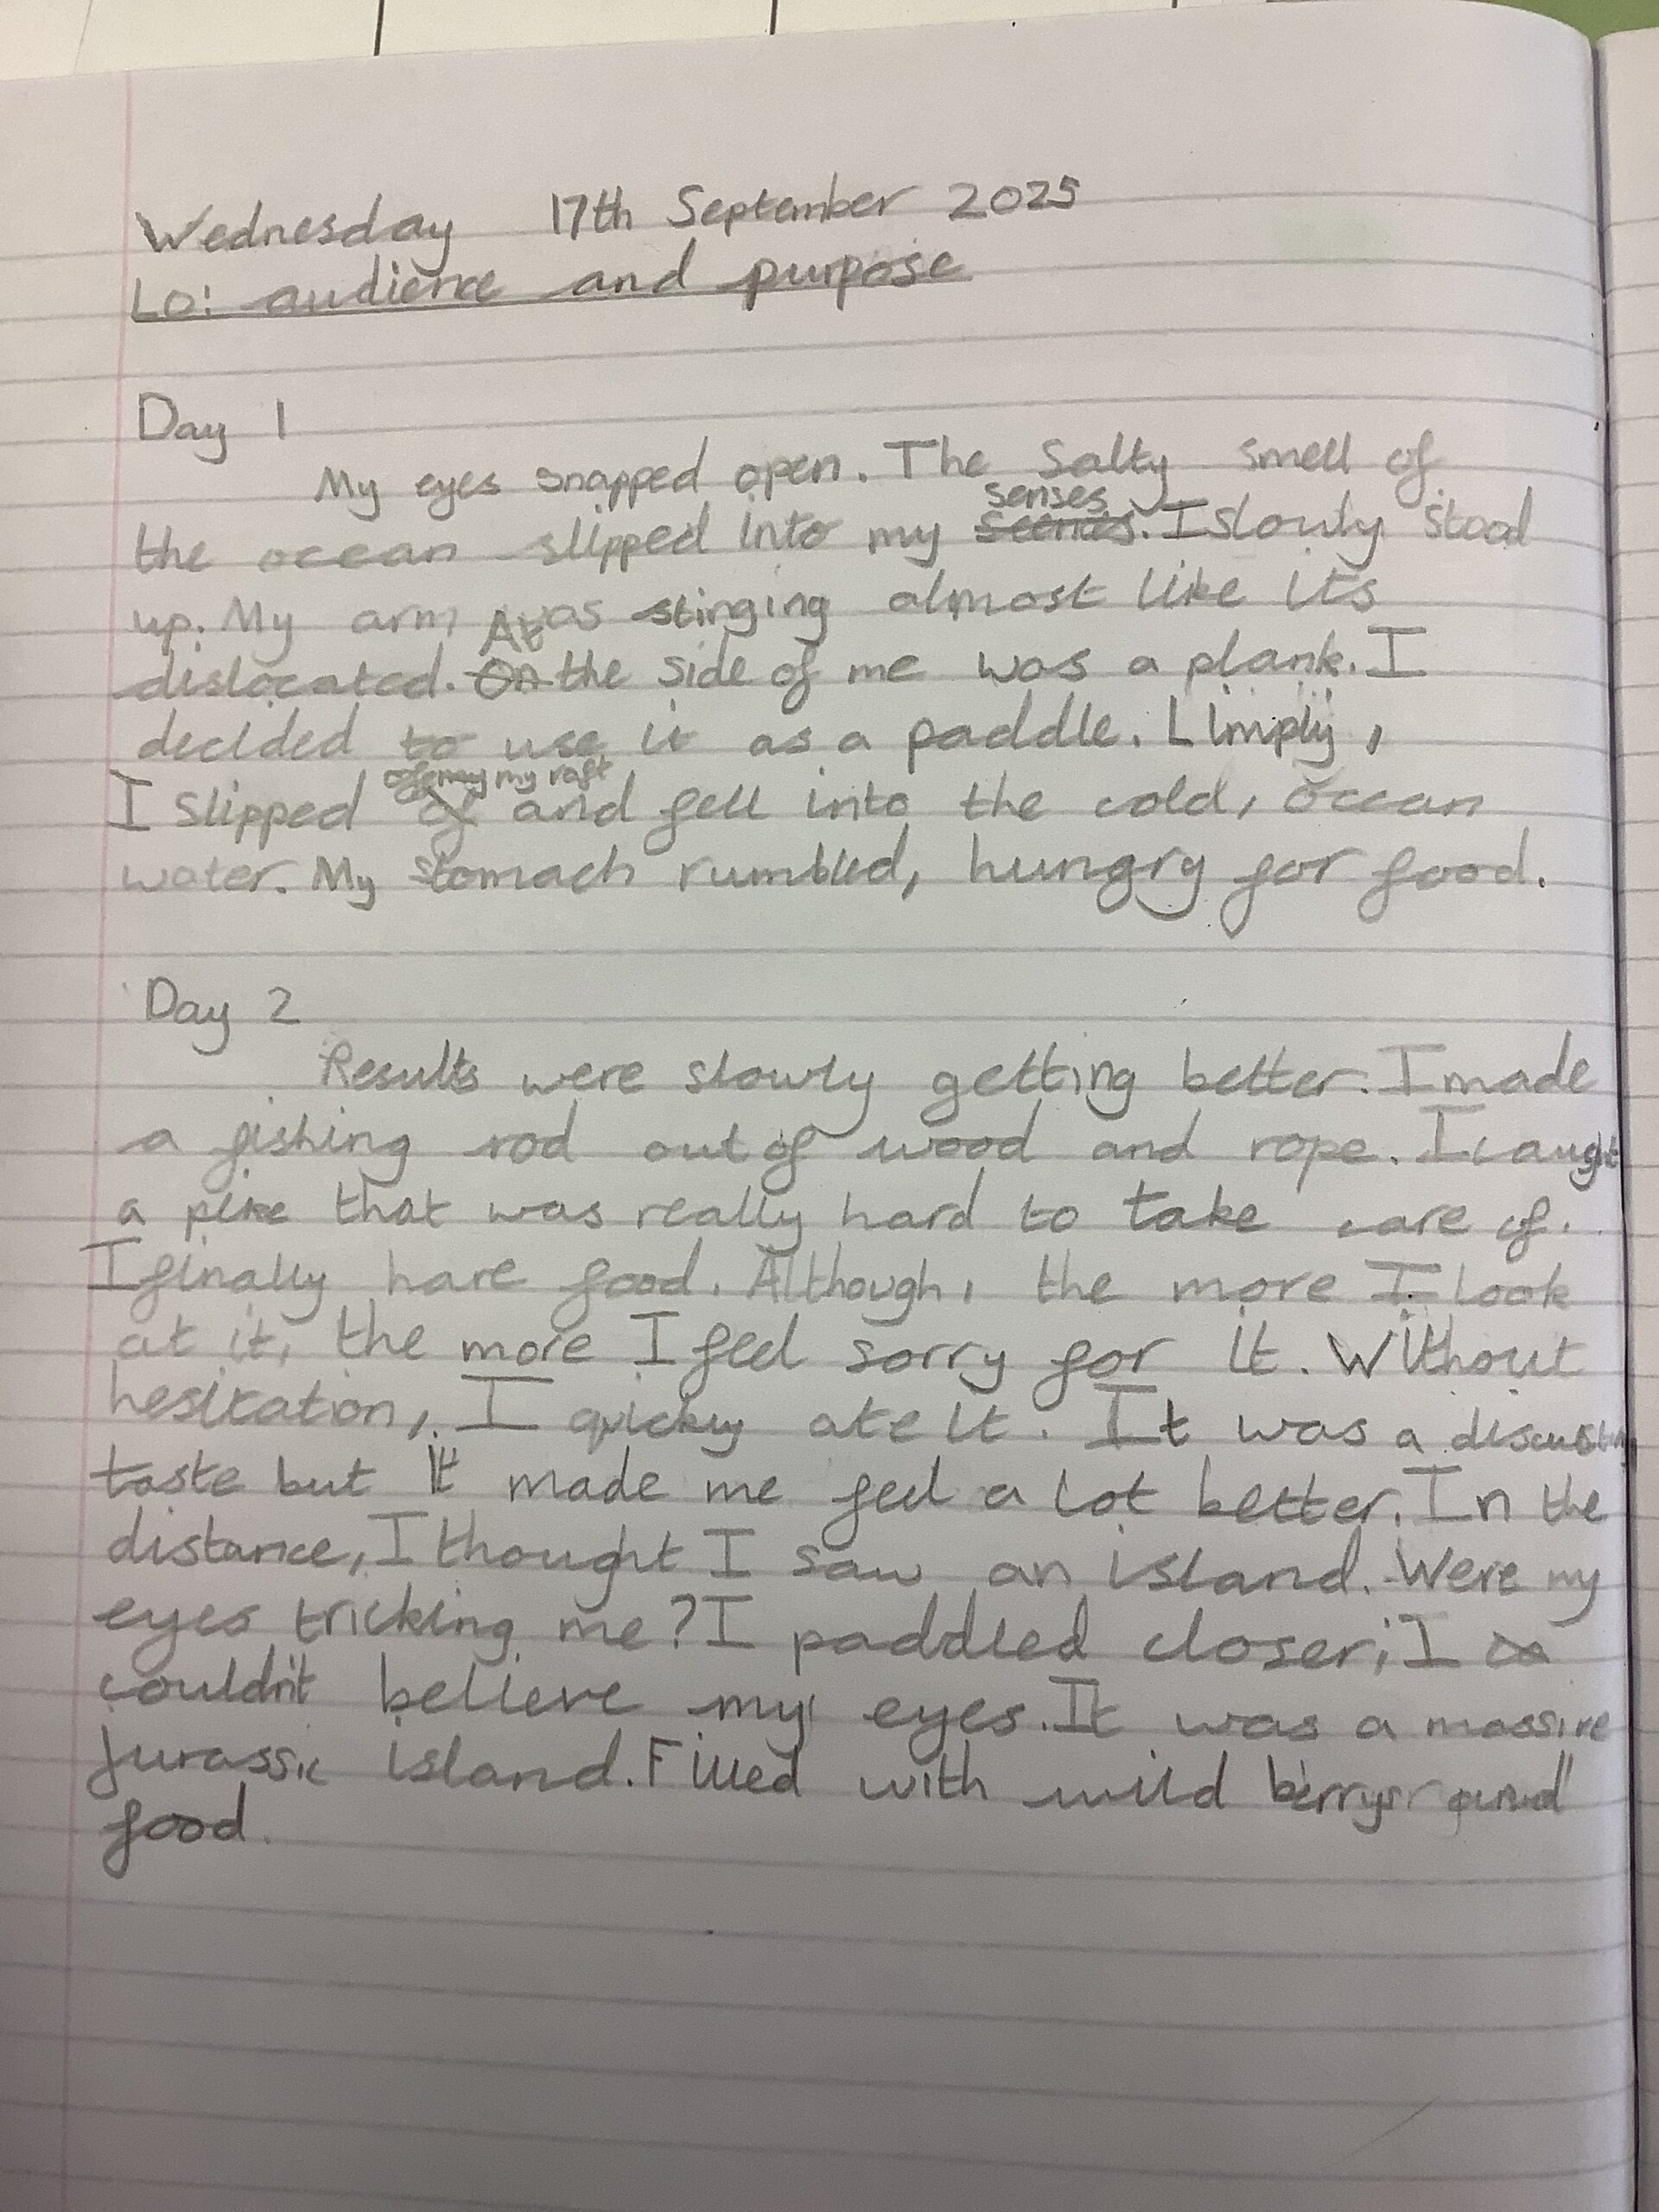 Wednesday 17th September 2025
Lo: audience and purpose
Day 1
My eyes snapped open. The salty smell of
senses
the ocean slipped into my . I slowly stood
up. My arm was stinging almost like its
At
dislocated. On the side of me was a plank. I
decided to use it as a paddle. Limply,
my raft
I slipped of and fell into the cold, ocean
water. My stomach rumbled, hungry for food.
Day 2
Results were slowly getting better. I made
a fishing rod out of wood and rope. I caught
a pike that was really hard to take care of.
I finally have food. Although, the more I look
at it, the more I feel sorry for it. Without
hesitation, I quickly ate it. It was a
taste but it made me feel a lot better. In the
distance, I thought I saw an island. Were my
eyes tricking me? I paddled closer; I
couldn't believe my eyes. It was a massive
jurassic island. Filled with wild berrys and
food.